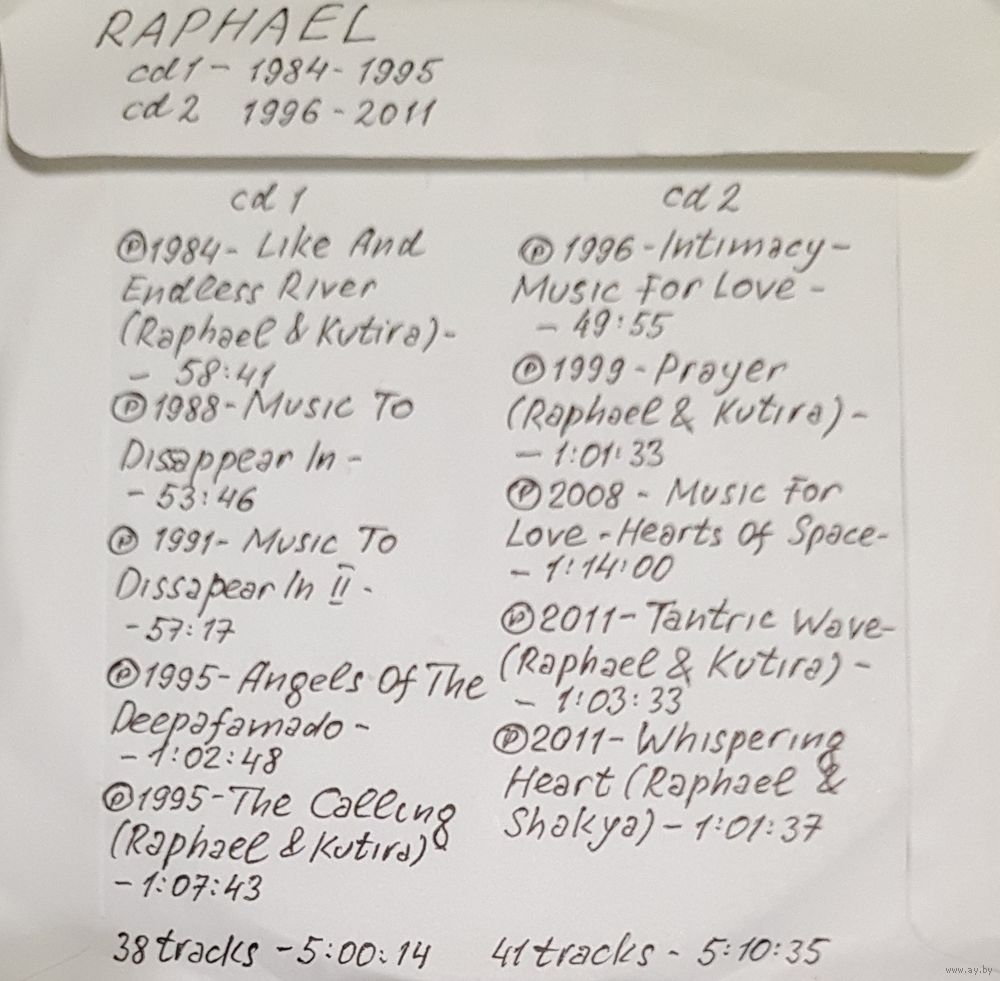 RAPHAEL
cd1 - 1984-1995
cd2 1996-2011
cd 1
℗1984- Like And
Endless River
(Raphael & Kutira)-
- 58:41
℗1988-Music To
Disappear In -
- 53:46
℗ 1991- Music To
Dissapear In II -
-57:17
℗1995-Angels Of The
Deepafamado -
- 1:02:48
℗1995-The Calling
(Raphael & Kutira)-
- 1:07:43
38 tracks - 5:00:14
cd 2
℗ 1996-Intimacy-
Music For Love -
- 49:55
℗1999-Prayer
(Raphael & Kutira)-
- 1:01:33
℗2008 - Music For
Love -Hearts Of Space-
- 1:14:00
℗2011-Tantric Wave-
(Raphael & Kutira) -
- 1:03:33
℗2011-Whispering
Heart (Raphael &
Shakya) - 1:01:37
41 tracks - 5:10:35
www.ay.by